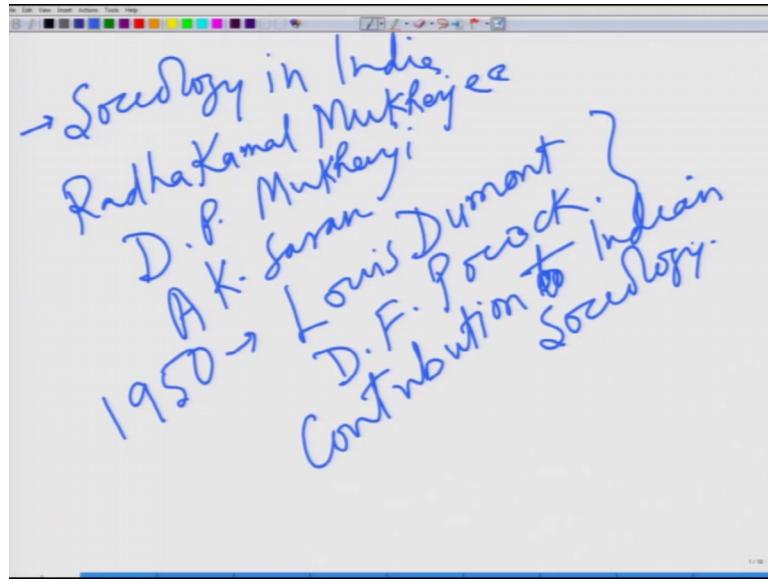 File Edit View Insert Actions Tools Help
→ Sociology in India
RadhaKamal Mukherjee
D. P. Mukherji
A K. Saran
1950 → Louis Dumont
D. F. Pocock.
Contribution to Indian
Sociology.
1/10